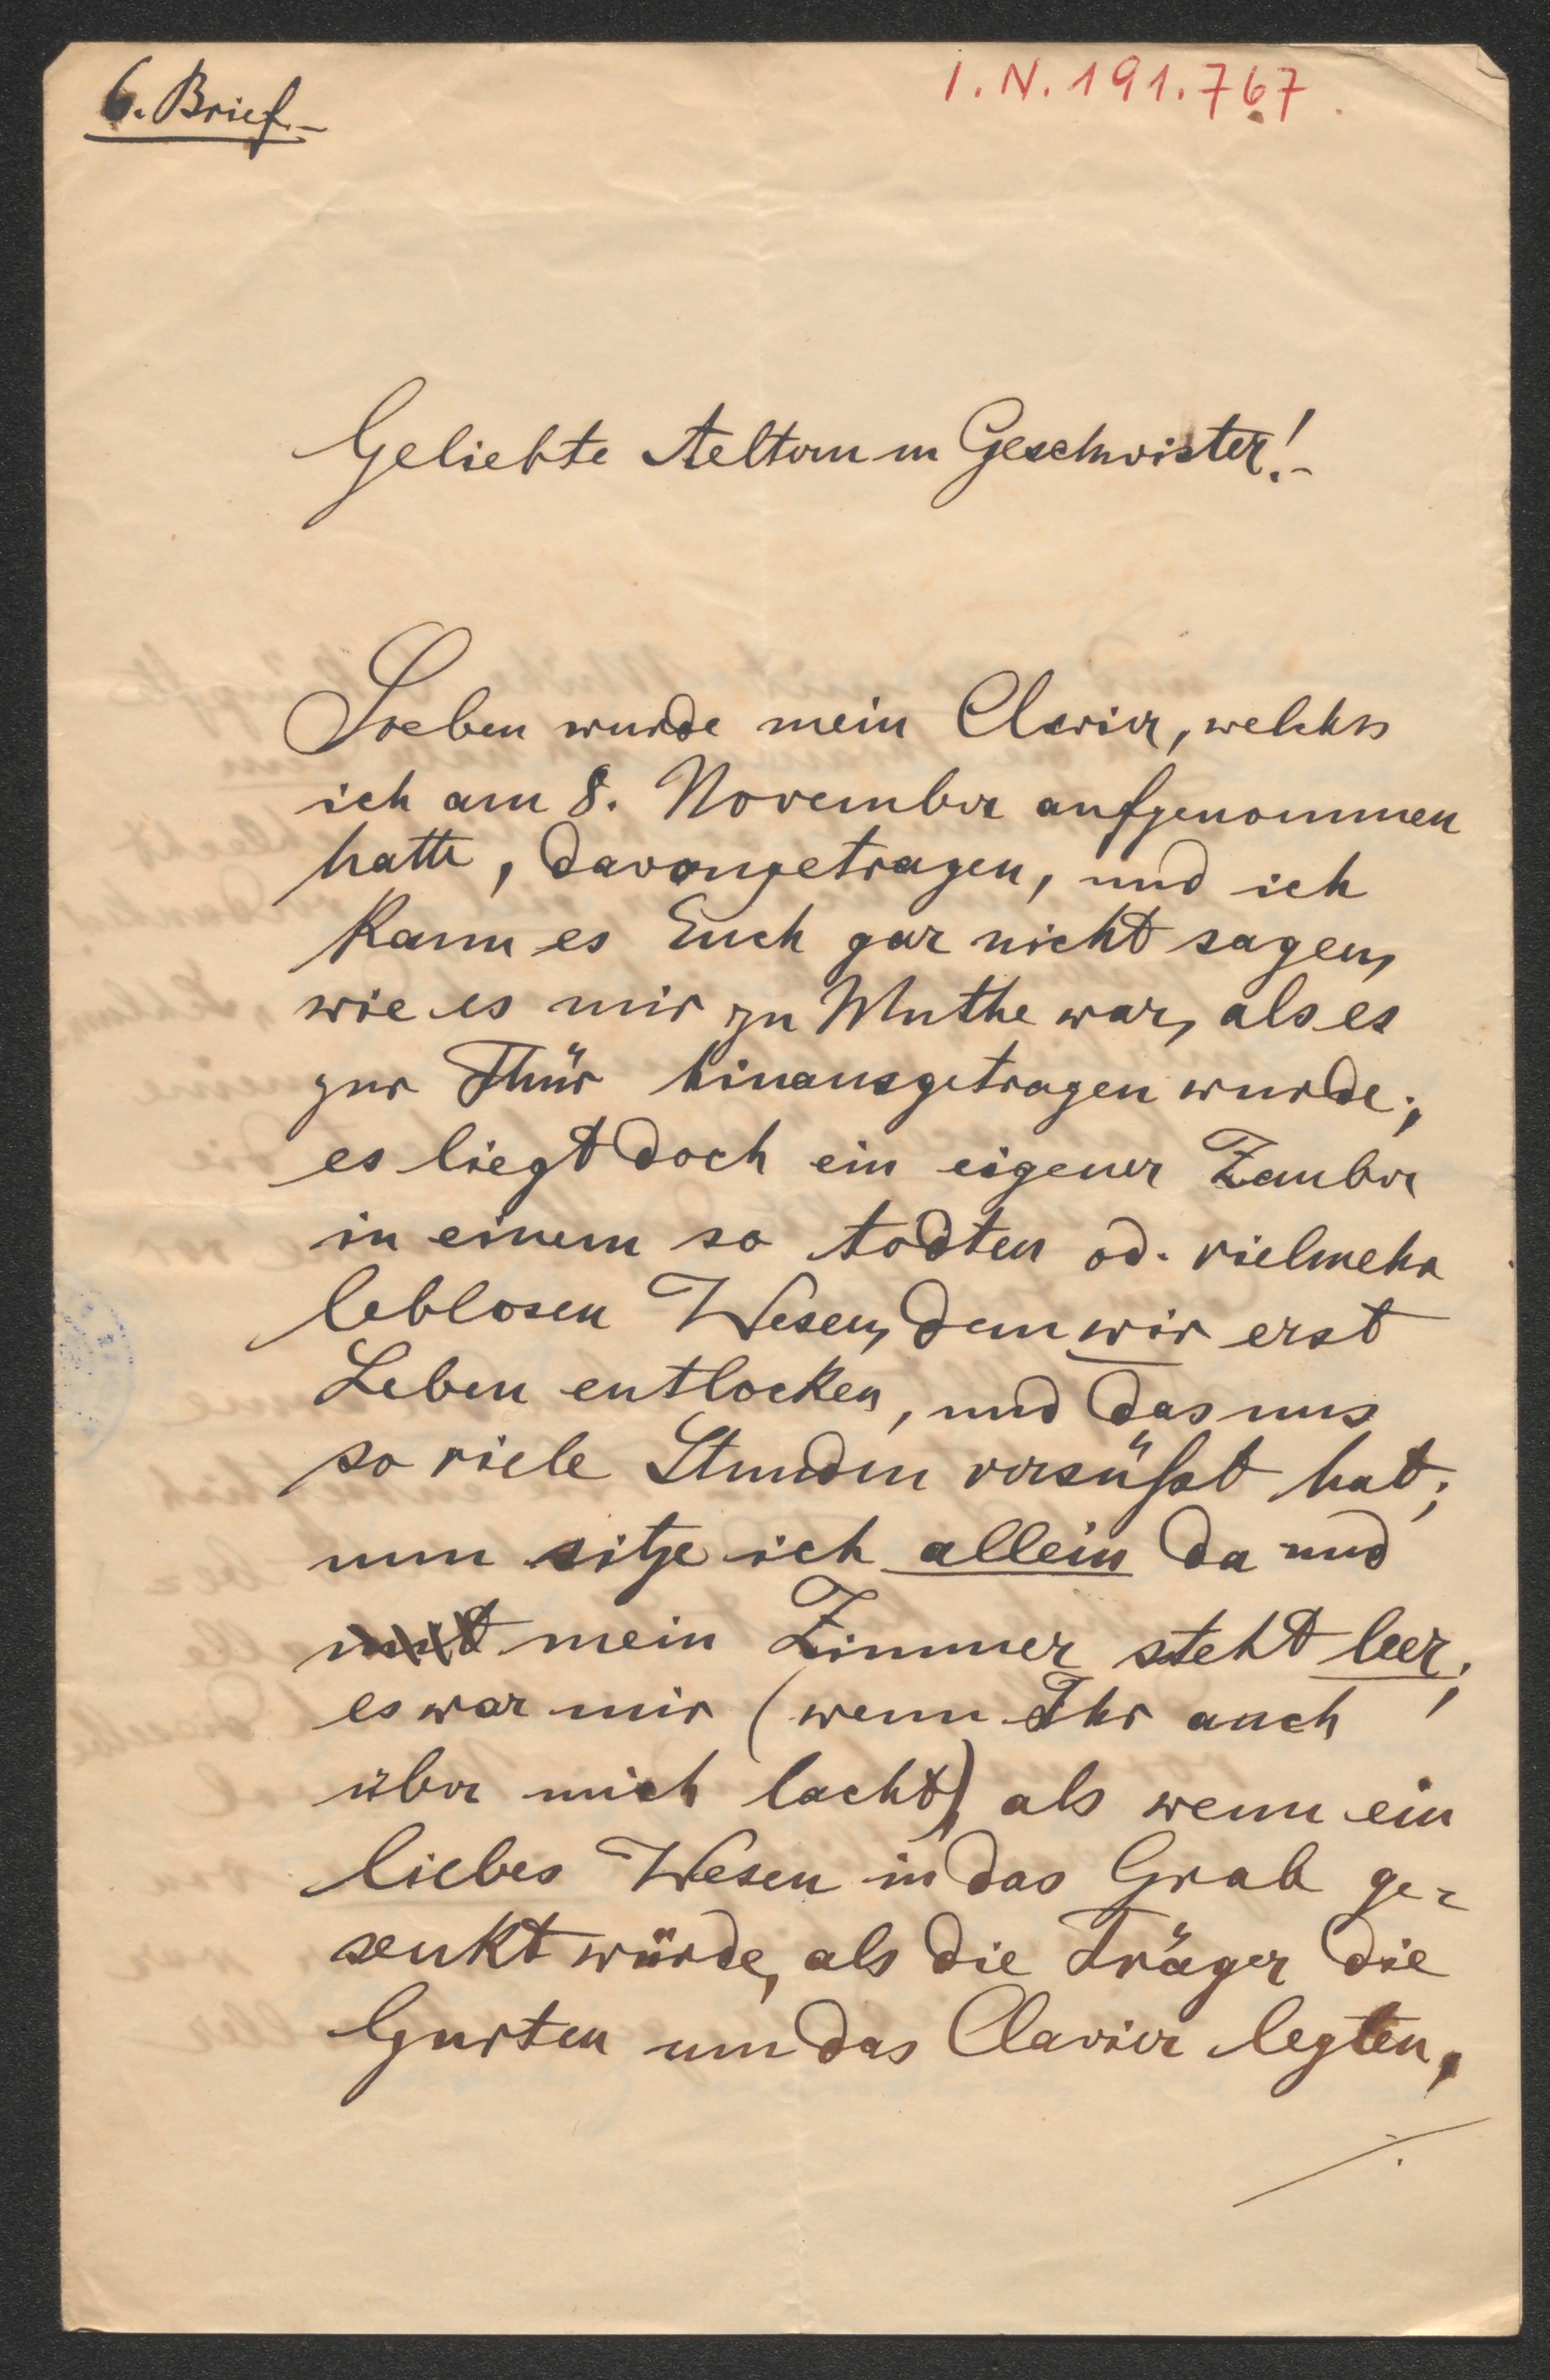 6. Brief.-
I.N.191.767
Geliebte Aeltern u Geschwister!-
Soeben wurde mein Clavier, welches
ich am 8. November aufgenommen
hatte, davongetragen, und ich
kann es Euch gar nicht sagen,
wie es mir zu Muthe war, als es
zur Thür hinausgetragen wurde;
es liegt doch ein eigener Zauber
in einem so todten od. vielmehr
leblosen Wesen, dem wir erst
Leben entlocken, und das uns
so viele Stunden versüßt hat;
nun sitze ich allein da und
mein Zimmer steht leer;
es war mir (wenn Ihr auch
über mich lacht), als wenn ein
liebes Wesen in das Grab ge=
senkt würde, als die Träger die
Gurten um das Clavier legten,
./.